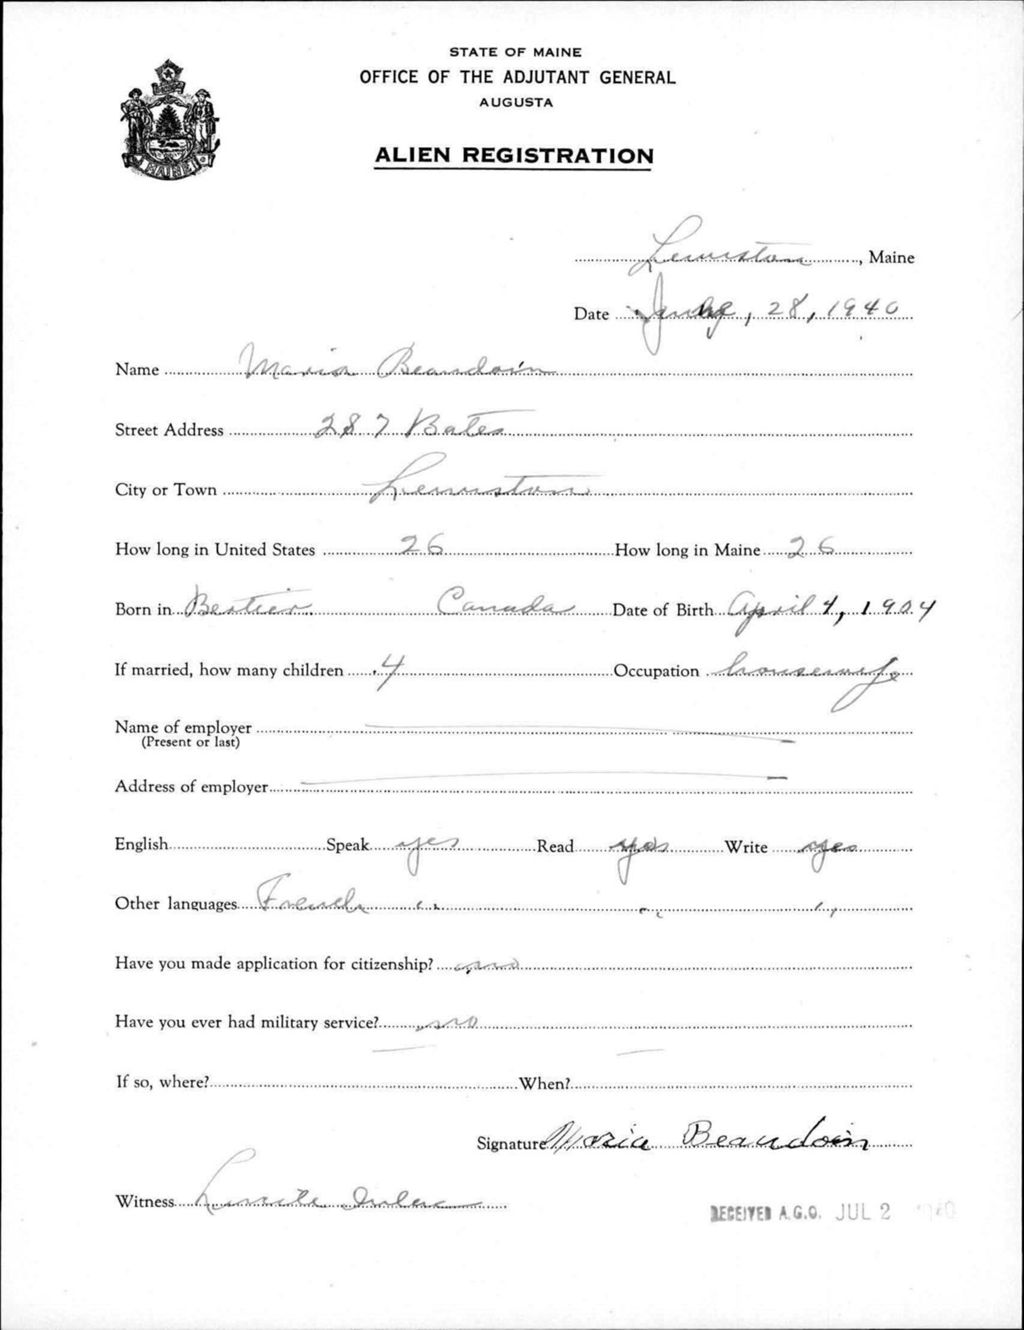 STATE OF MAINE
OFFICE OF THE ADJUTANT GENERAL
AUGUSTA
ALIEN REGISTRATION
MAINE
Lewiston, Maine
Date 28, 1940
Name Maria Beaudoin
Street Address 287 Bates
City or Town Lewiston
How long in United States 26 How long in Maine 26
Born in Bertier Canada Date of Birth April 4, 1904
If married, how many children 4 Occupation housewife
Name of employer
(Present or last)
Address of employer
English Speak yes Read yes Write yes
Other languages French " " "
Have you made application for citizenship? no
Have you ever had military service? no
If so, where? When?
Signature Maria Beaudoin
Witness
RECEIVED A.G.O. JUL 2 1940